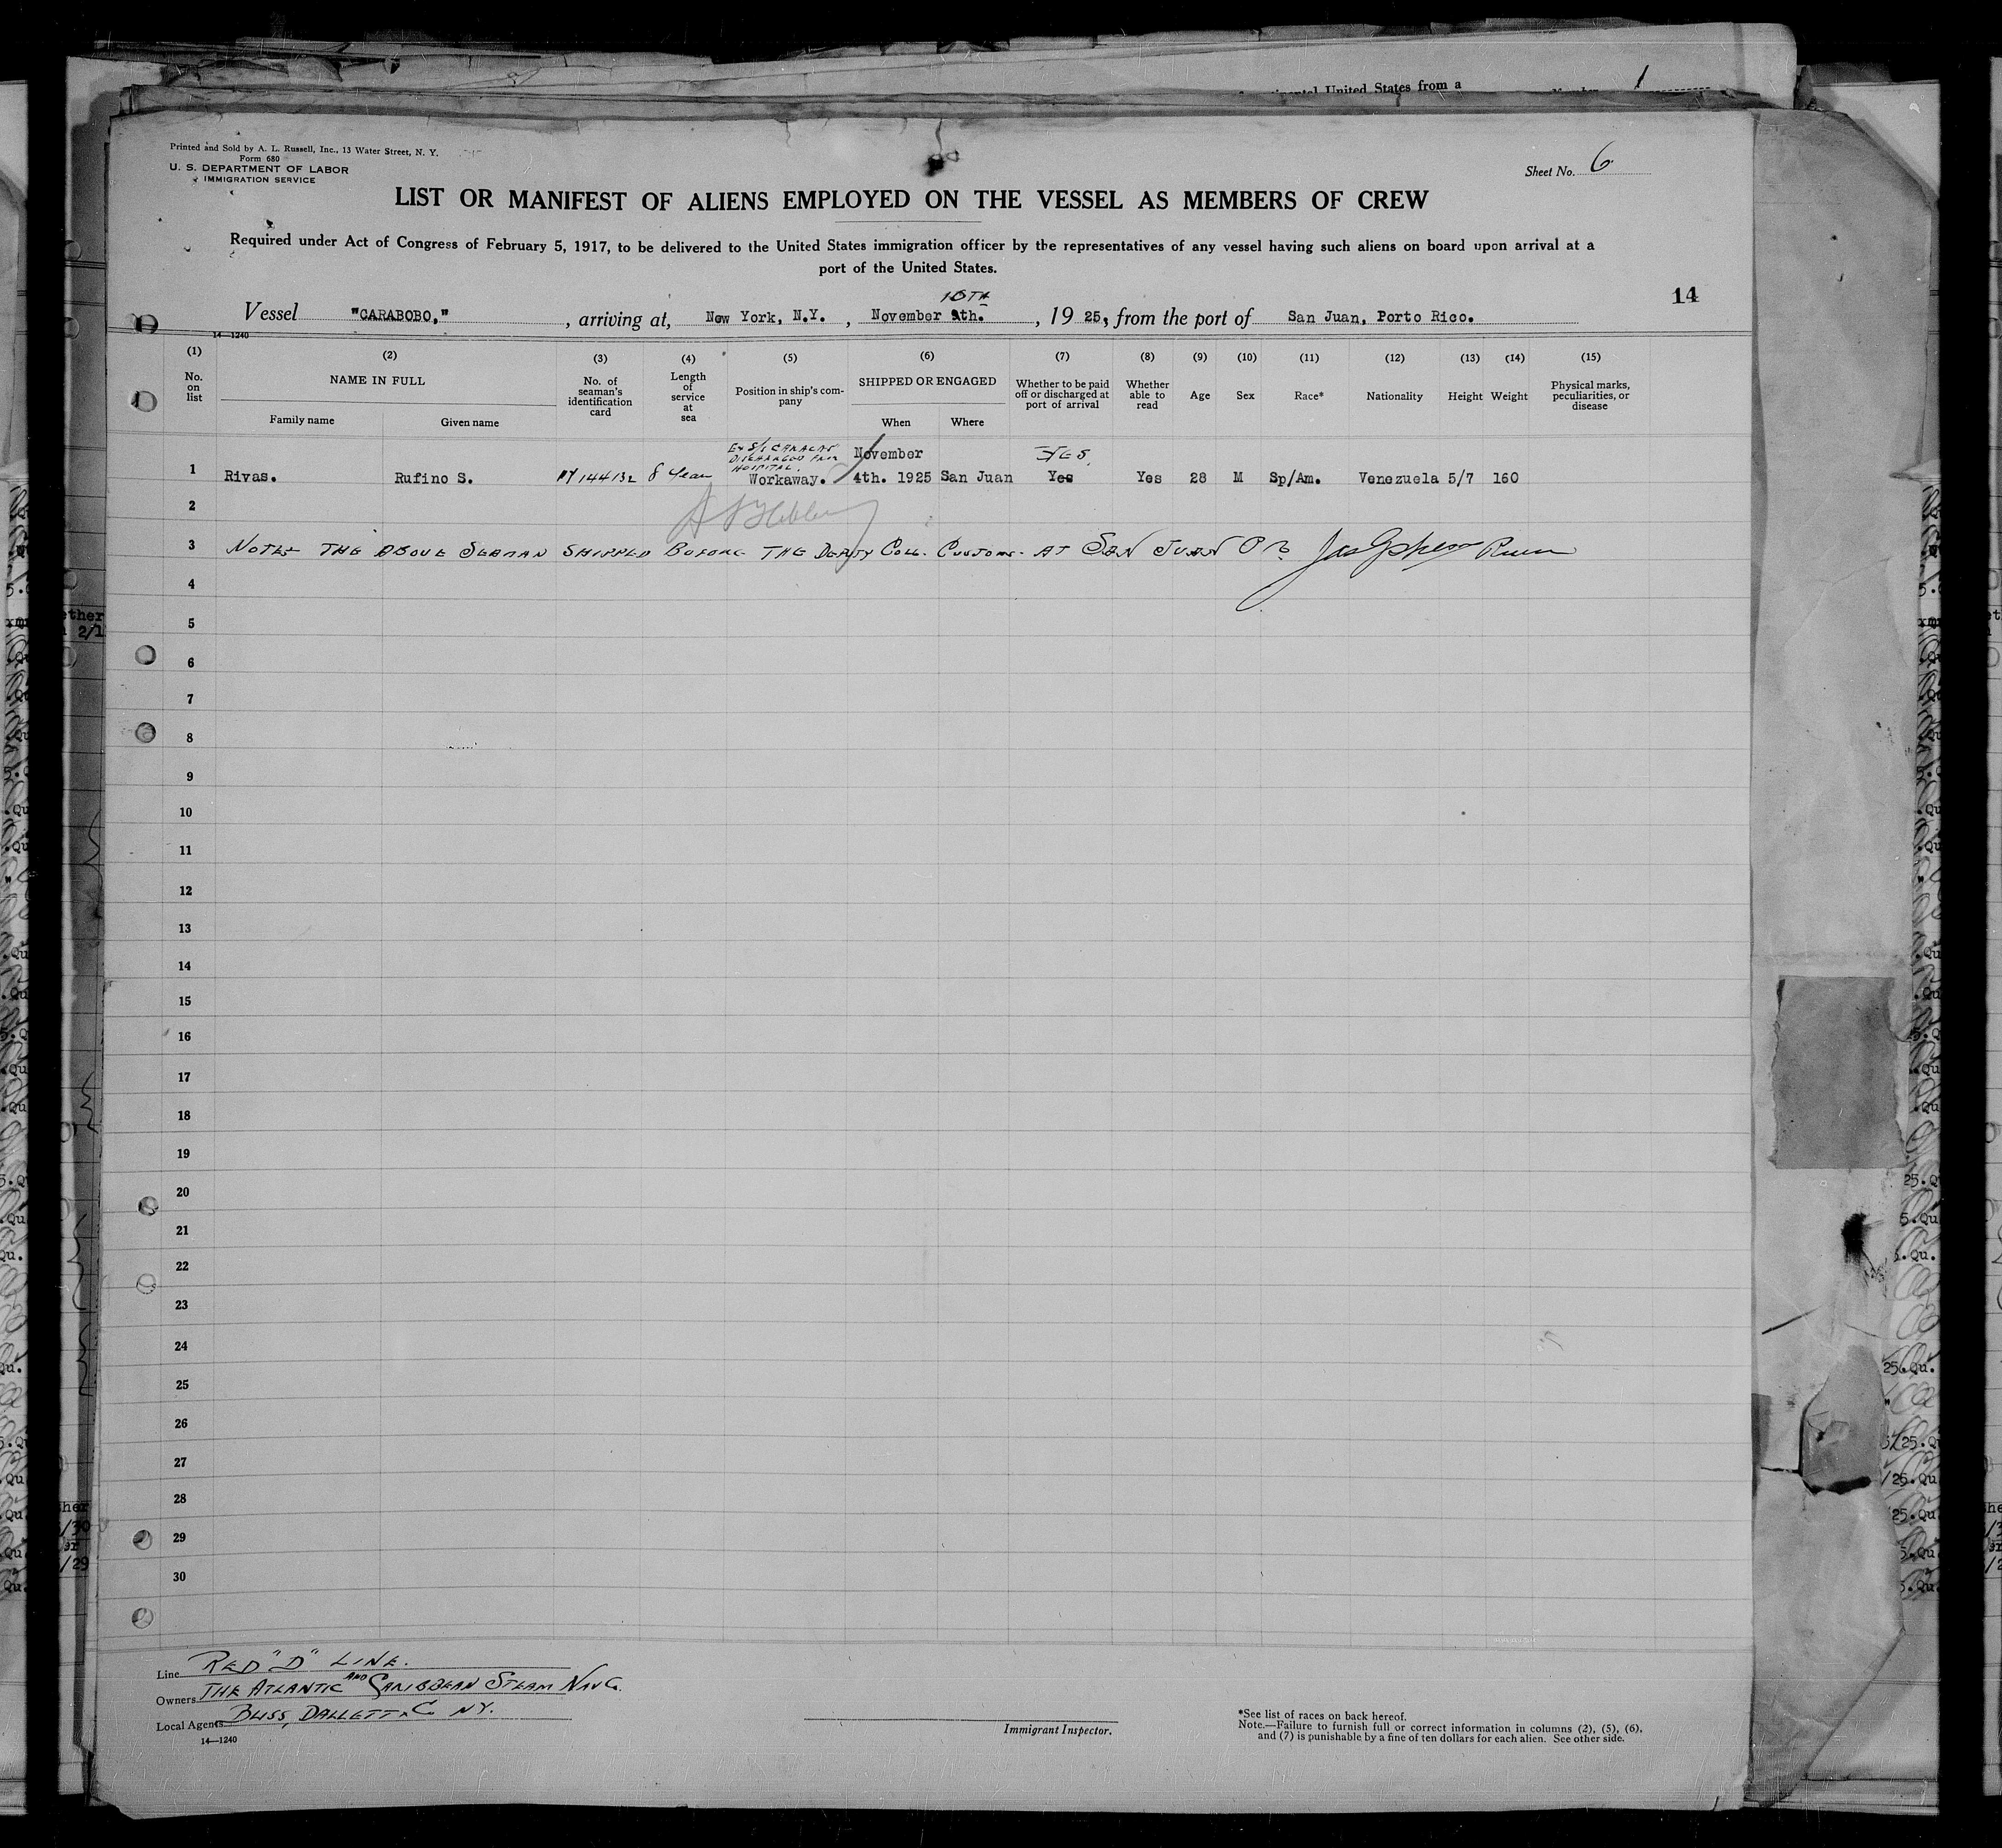 Printed and Sold by A. L. Russell, Inc., 13 Water Street, N. Y.
Form 680
U. S. DEPARTMENT OF LABOR
IMMIGRATION SERVICE
United States from a
1
Sheet No. 6
LIST OR MANIFEST OF ALIENS EMPLOYED ON THE VESSEL AS MEMBERS OF CREW
Required under Act of Congress of February 5, 1917, to be delivered to the United States immigration officer by the representatives of any vessel having such aliens on board upon arrival at a
port of the United States.
10TH
14
Vessel "CARABOBO," , arriving at, New York, N.Y. , November 9th. , 19 25, from the port of San Juan, Porto Rico.
14—1240
(1) (2) (3) (4) (5) (6) (7) (8) (9) (10) (11) (12) (13) (14) (15)
No. on list
NAME IN FULL
Family name
Given name
No. of seaman's identification card
Length of service at sea
Position in ship's company
SHIPPED OR ENGAGED
When
Where
Whether to be paid off or discharged at port of arrival
Whether able to read
Age
Sex
Race*
Nationality
Height
Weight
Physical marks, peculiarities, or disease
Ex S/S CARACAS
DISCHARGED FROM
HOSPITAL.
November
YES.
1 Rivas. Rufino S. 144132 8 Year Workaway. 4th. 1925 San Juan Yes Yes 28 M Sp/Am. Venezuela 5/7 160
2
3 NOTE THE ABOVE SEAMAN SHIPPED BEFORE THE DEPTY COLL. CUSTOMS. AT SAN JUAN P R
4
5
6
7
8
9
10
11
12
13
14
15
16
17
18
19
20
21
22
23
24
25
26
27
28
29
30
Line RED "D" LINE.
Owners THE ATLANTIC AND CARIBBEAN STEAM NAV Co.
Local Agents BLISS, DALLETT & Co NY.
14—1240
Immigrant Inspector.
*See list of races on back hereof.
Note.—Failure to furnish full or correct information in columns (2), (5), (6),
and (7) is punishable by a fine of ten dollars for each alien. See other side.